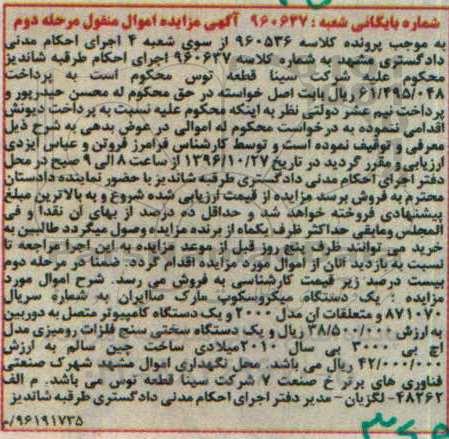 شماره بایگانی شعبه : ۹۶۰۶۳۷ آگهی مزایده اموال منقول مرحله دوم
به موجب پرونده کلاسه ۹۶۰۵۳۶ از سوی شعبه ۴ اجرای احکام مدنی
دادگستری مشهد به شماره کلاسه ۹۶۰۶۳۷ اجرای احکام طرقبه شاندیز
محکوم علیه شرکت سینا قطعه توس محکوم است به پرداخت
۶۱/۴۹۵/۰۴۸ ریال بابت اصل خواسته در حق محکوم له محسن حیدرپور و
پرداخت نیم عشر دولتی نظر به اینکه محکوم علیه نسبت به پرداخت دیونش
اقدامی ننموده به درخواست محکوم له اموالی در عوض بدهی به شرح ذیل
معرفی و توقیف نموده است و توسط کارشناس فرامرز فروتن و عباس ایزدی
ارزیابی و مقرر گردید در تاریخ ۱۳۹۶/۱۰/۲۷ از ساعت ۸ الی ۹ صبح در محل
دفتر اجرای احکام مدنی دادگستری طرقبه شاندیز با حضور نماینده دادستان
محترم به فروش برسد مزایده از قیمت ارزیابی شده شروع و به بالاترین مبلغ
پیشنهادی فروخته خواهد شد و حداقل ده درصد از بهای آن نقدا و فی
المجلس ومابقی حداکثر ظرف یکماه از برنده مزایده وصول میگردد طالبین به
خرید می توانند ظرف پنج روز قبل از موعد مزایده به این اجرا مراجعه تا
نسبت به بازدید آنان از اموال مورد مزایده اقدام گردد. ضمنا در مرحله دوم
بیست درصد زیر قیمت کارشناسی به فروش می رسد. شرح اموال مورد
مزایده : یک دستگاه میکروسکوپ مارک صاایران به شماره سریال
۸۷۱۰۷۰ و متعلقات آن مدل ۲۰۰۰ و یک دستگاه کامپیوتر متصل به دوربین
به ارزش ۳۸/۵۰۰/۰۰۰ ریال و یک دستگاه سختی سنج فلزات رومیزی مدل
اچ بی ۳۰۰۰ بی سال ۲۰۱۰میلادی ساخت چین سالم به ارزش
۴۲/۰۰۰/۰۰۰ ریال می باشد. محل نگهداری اموال مشهد شهرک صنعتی
فناوری های برتر خ صنعت ۷ شرکت سینا قطعه توس می باشد. م الف
۴۸۲۶۲- لگزیان - مدیر دفتر اجرای احکام مدنی دادگستری طرقبه شاندیز
۹۶۱۹۱۷۳۵/م